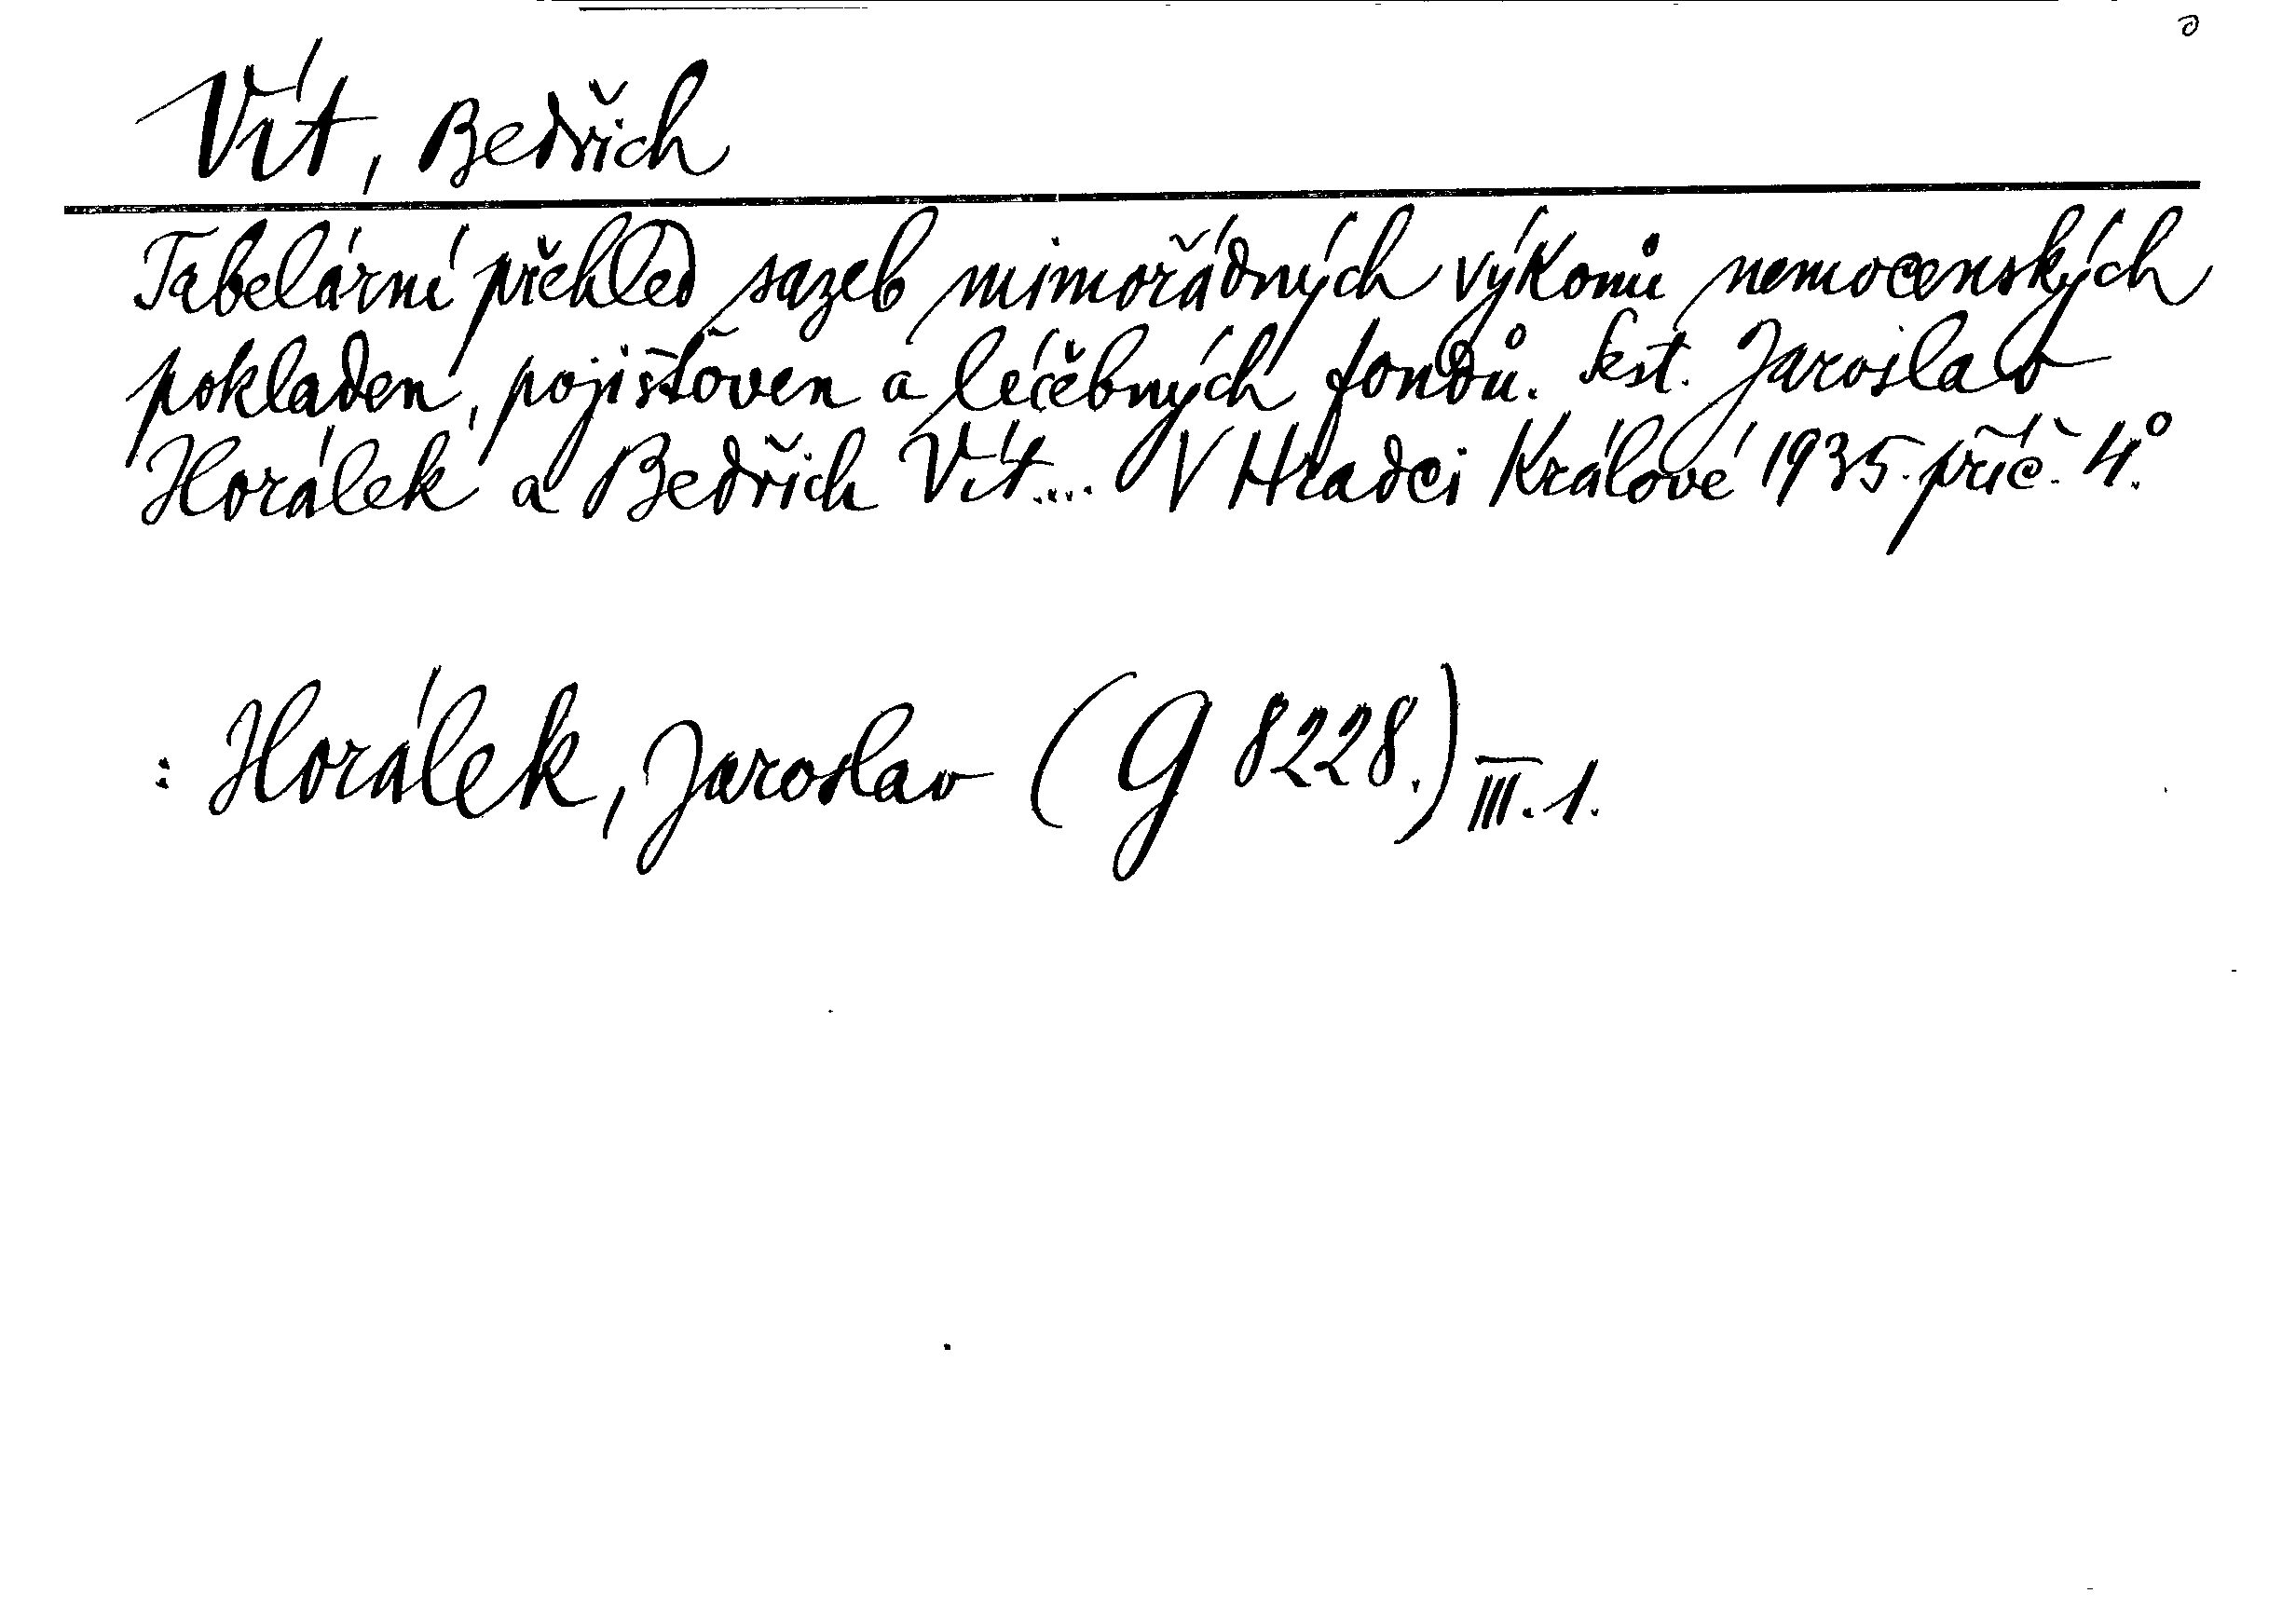 Vít, Bedřich
Tabelární přehled sazeb mimořádných výkonů nemocenských
pokladen, pojišťoven a léčebných fondů. Sest. Jaroslav
Horálek a Bedřich Vít.... V Hradci Králové 1935. příč. 4°.
: Horálek, Jaroslav (G 8228.) III. 1.